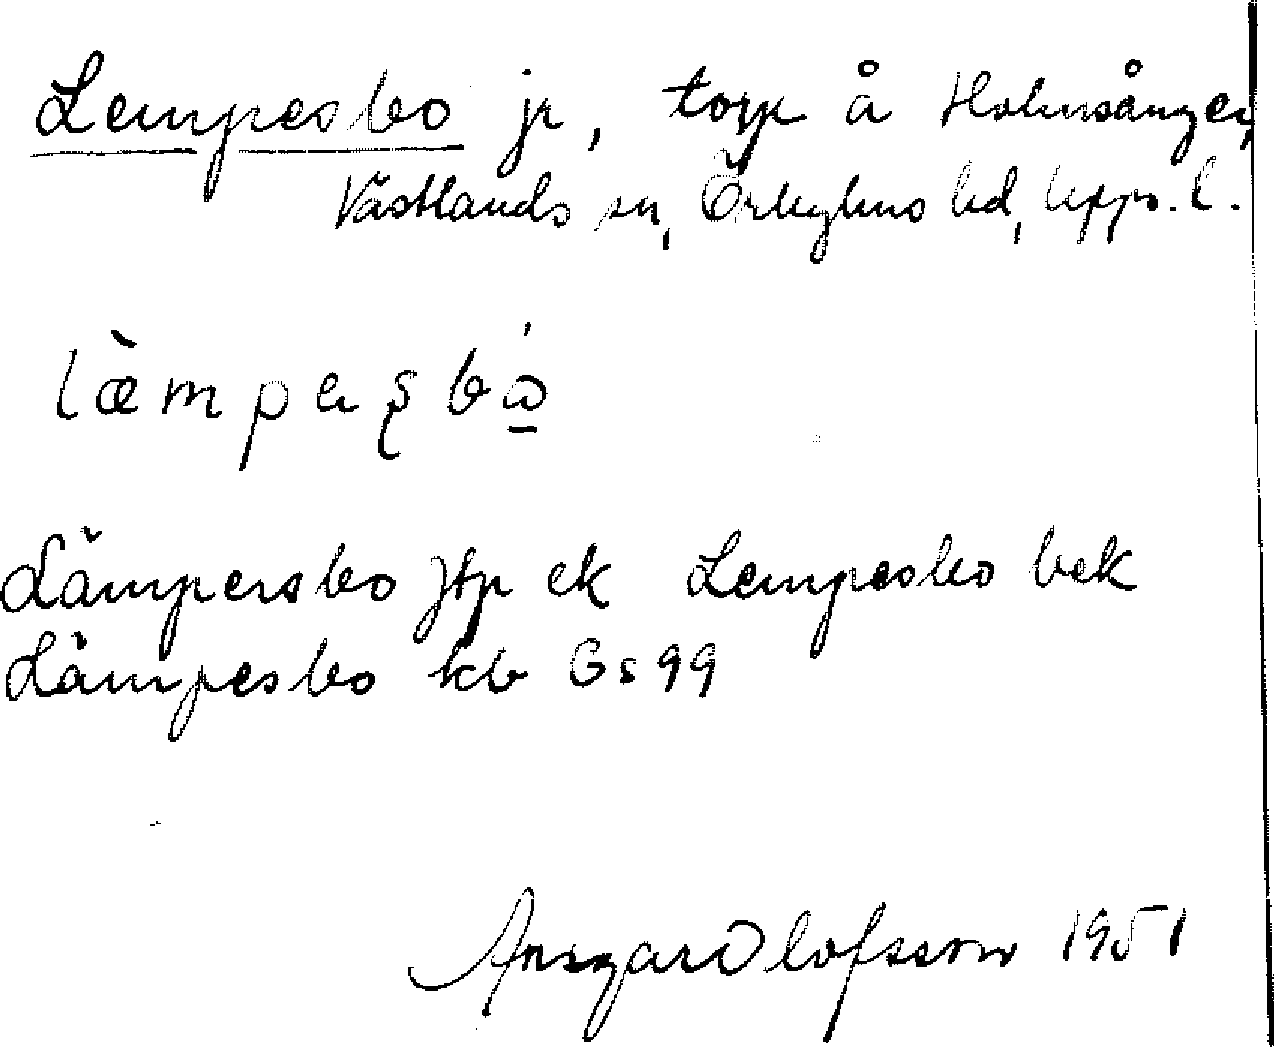 Lempesbo jr, torp å Holmsånger,
Västlands sn, Örbyhus hd, Upps. l.
Lämpersbo jfp ek Lempesbo bek
Lämpesbo kb Gs 99
Ansgar Olofsson 1951